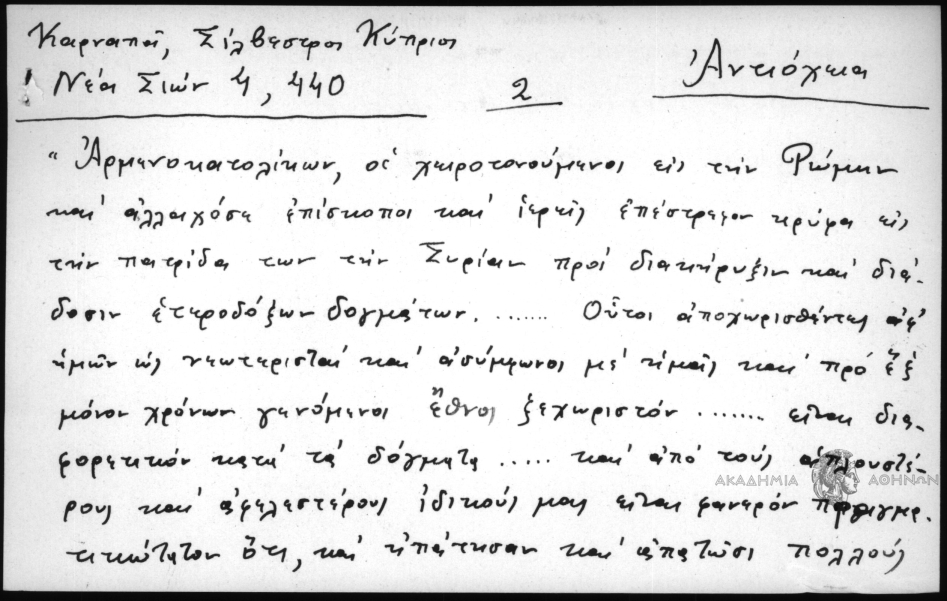 Καρναπᾶ, Σίλβεστρος Κύπριος
Νέα Σιών 4, 440
2
Ἀντιόχεια
"Ἀρμενοκατολίκων, οἱ χειροτονούμενοι εἰς τὴν Ρώμην
καὶ ἀλλαχόσε ἐπίσκοποι καὶ ἱερεῖς ἐπέστρεφον κρύφα εἰς
τὴν πατρίδα των τὴν Συρίαν πρὸς διακήρυξιν καὶ διά-
δοσιν ἑτεροδόξων δογμάτων. ....... Οὗτοι ἀποχωρισθέντες ἀφ'
ἡμῶν ὡς νεωτερισταὶ καὶ ἀσύμφωνοι μὲ ἡμᾶς καὶ πρὸ ἓξ
μόνον χρόνων γενόμενοι ἔθνος ξεχωριστόν ....... εἶναι δια-
φορετικόν κατὰ τὰ δόγματα ..... καὶ ἀπὸ τοὺς ἁπλουστέ-
ρους καὶ ἀφελεστέρους ἰδικούς μας εἶναι φανερὸν πραγμα-
τικώτατον ὅτι, καὶ ἠπάτησαν καὶ ἀπατῶσι πολλούς
ΑΚΑΔΗΜΙΑ ΑΘΗΝΩΝ